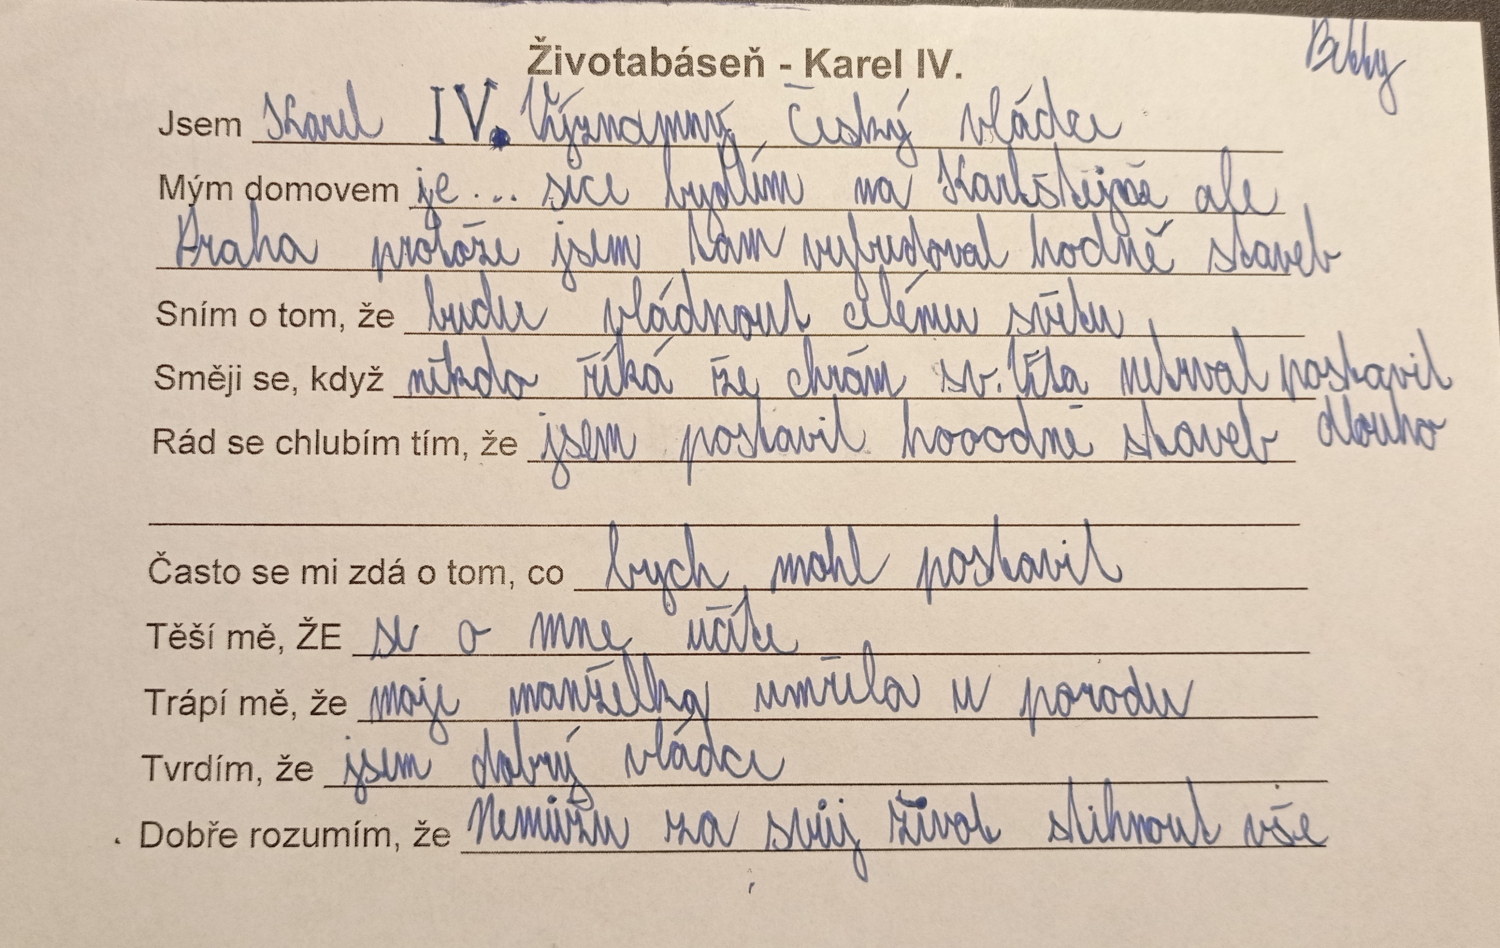 Životabáseň - Karel IV.
Bekky
Jsem Karel IV. Významný Český vládce
Mým domovem je... sice bydlím na Karlštejně ale
Praha protože jsem tam vybudoval hodně staveb
Sním o tom, že budu vládnout celému světu
Směji se, když někdo říká že chrám sv. Víta netrval postavil
dlouho
Rád se chlubím tím, že jsem postavil hooodně staveb
Často se mi zdá o tom, co bych mohl postavil
Těší mě, ŽE se o mne učíte
Trápí mě, že moje manželka umřela u porodu
Tvrdím, že jsem dobrý vládce
Dobře rozumím, že Nemůžu za svůj život stihnout vše